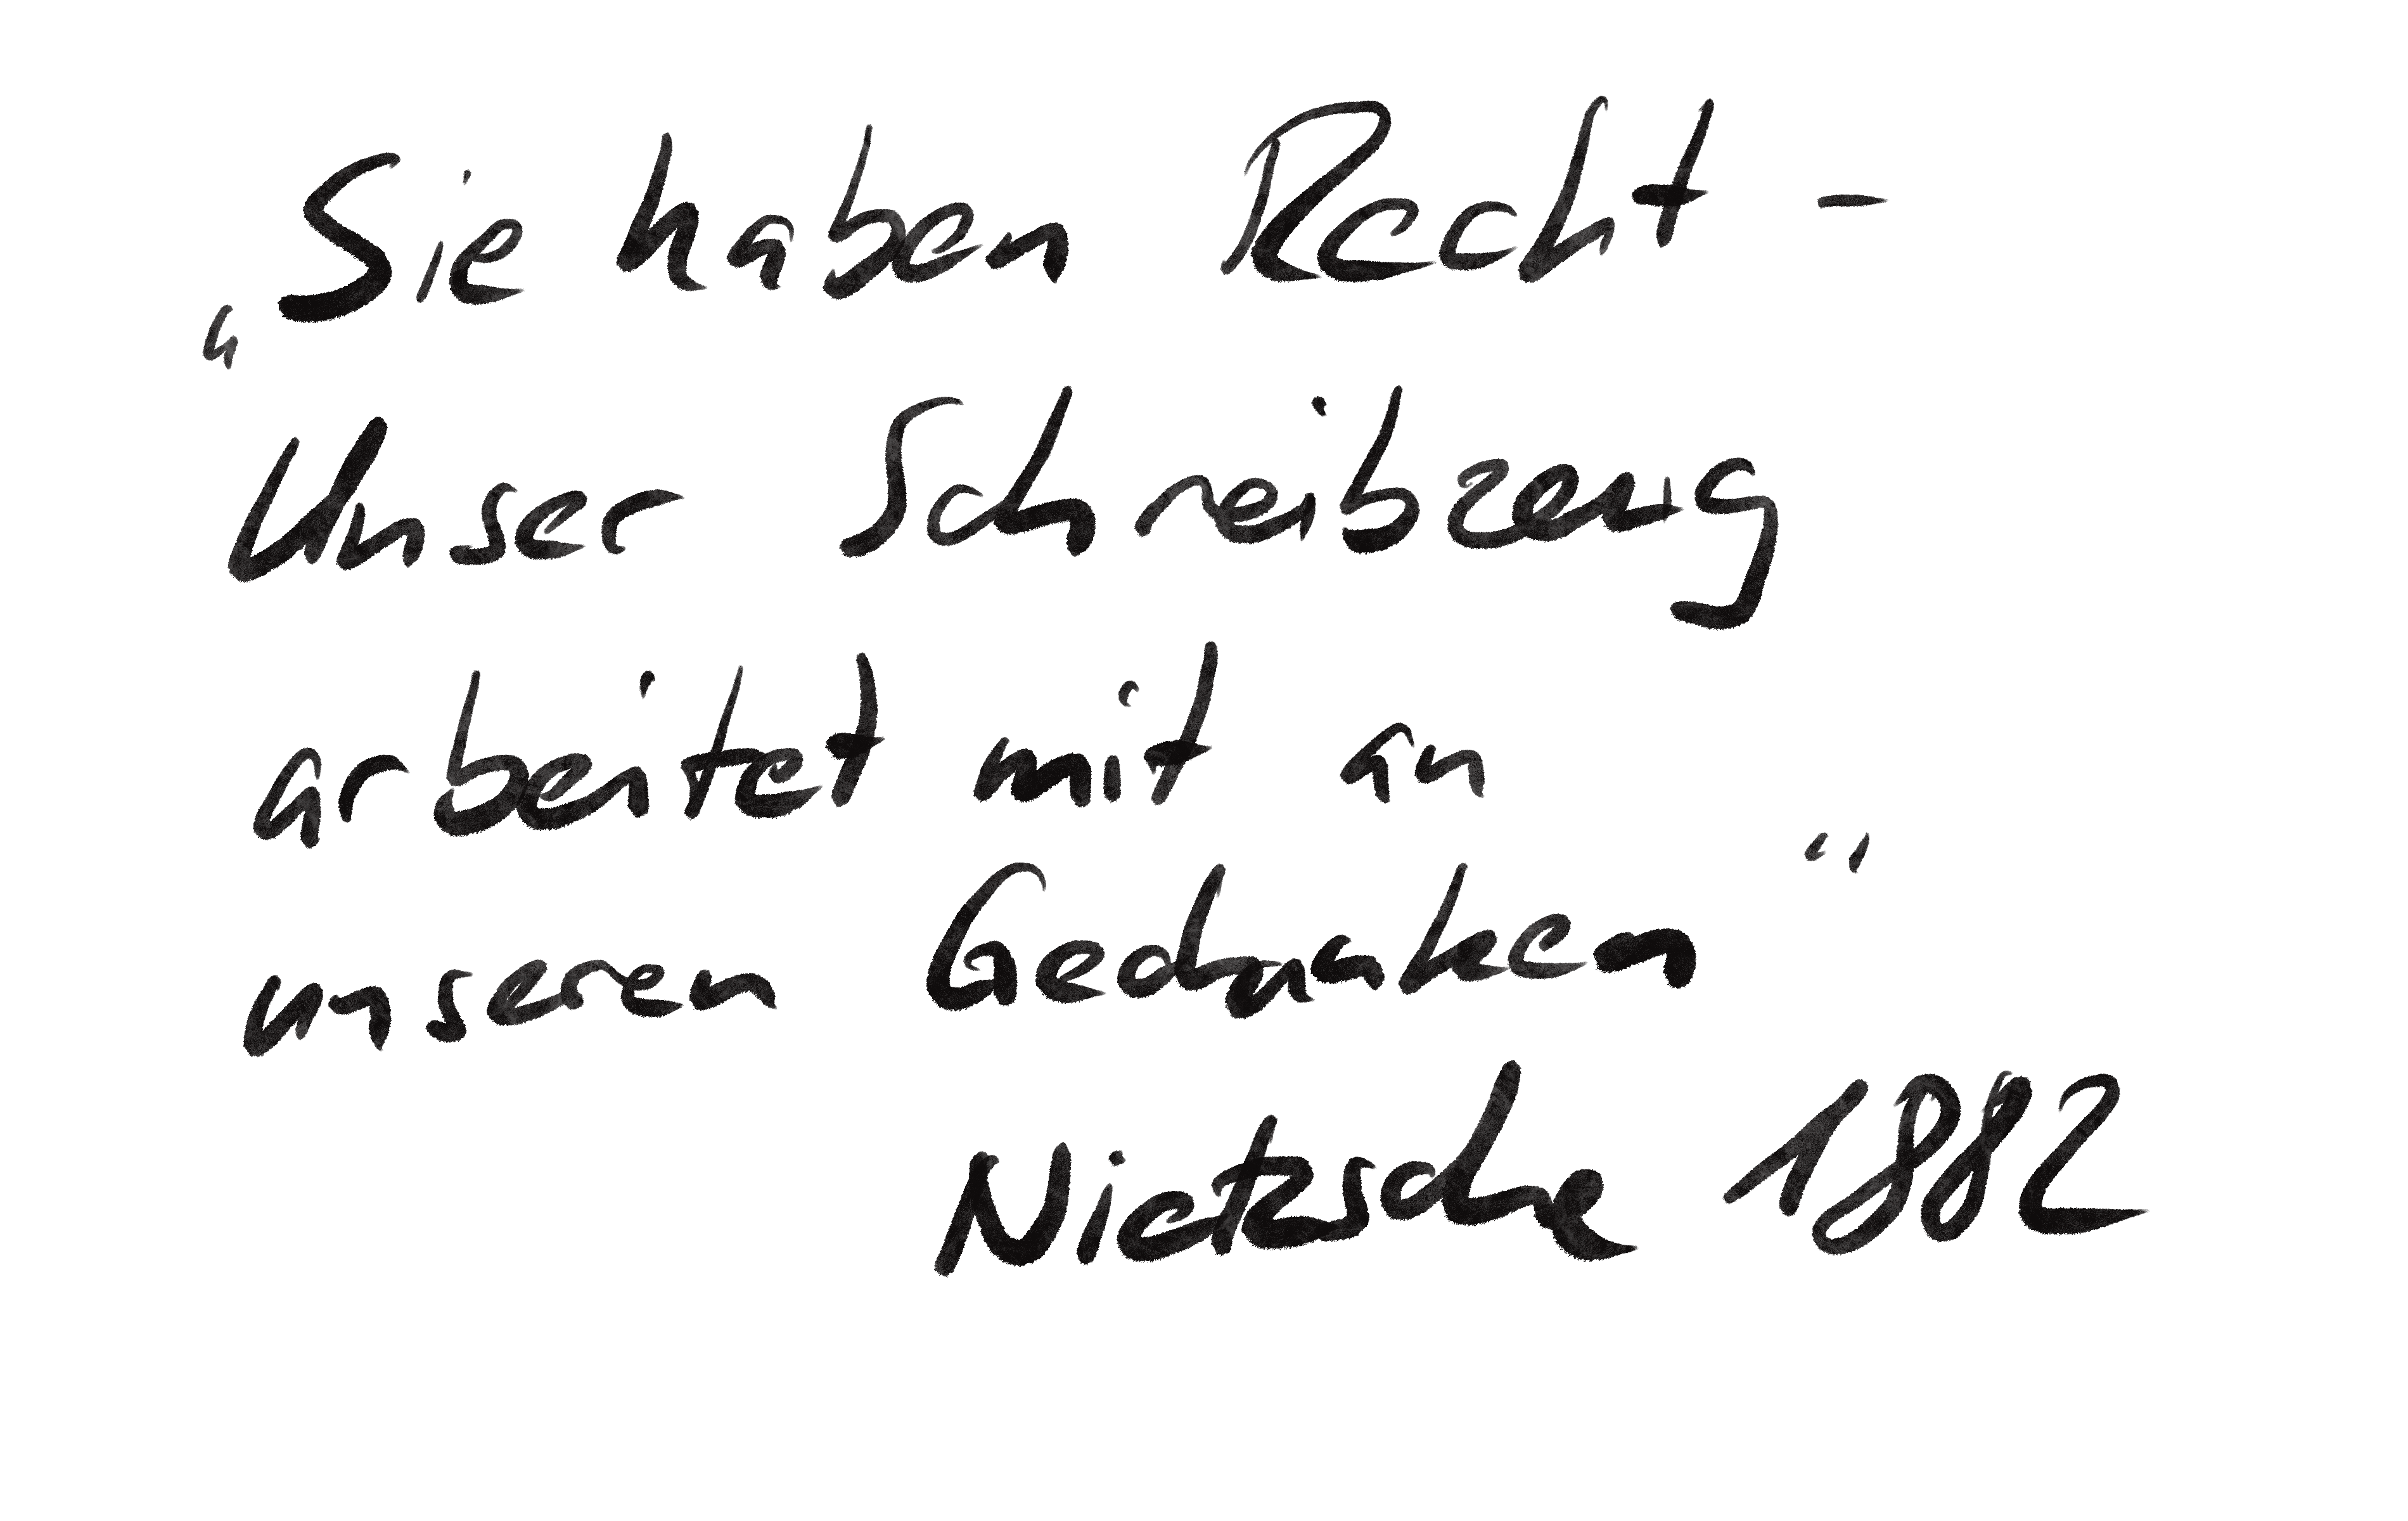 „Sie haben Recht –
Unser Schreibzeug
arbeitet mit an
unseren Gedanken“
Nietzsche 1882